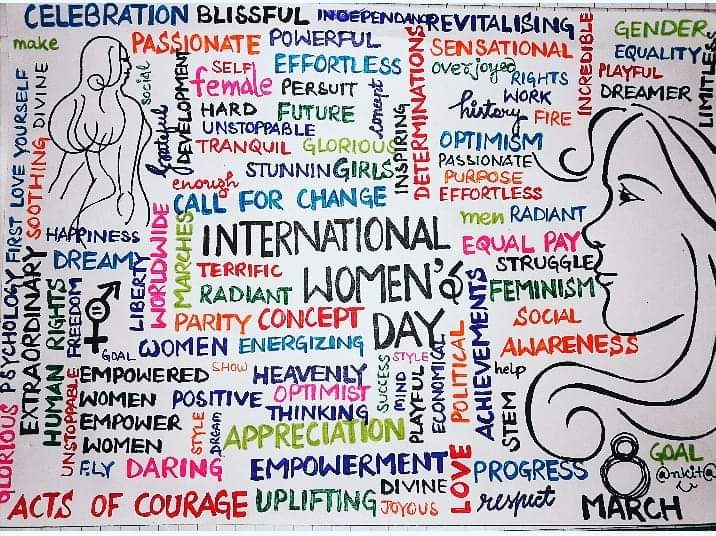 CELEBRATION BLISSFUL INDEPENDANT REVITALISING
make PASSIONATE POWERFUL SENSATIONAL INCREDIBLE GENDER
EQUALITY LIMITLESS
social DEVELOPMENT SELF EFFORTLESS DETERMINATIONS overjoyed RIGHTS PLAYFUL
female PERSUIT concept WORK DREAMER
grateful HARD FUTURE INSPIRING history FIRE
UNSTOPPABLE OPTIMISM
TRANQUIL GLORIOUS PASSIONATE
STUNNING GIRLS PURPOSE
enough EFFORTLESS
CALL FOR CHANGE men RADIANT
DIVINE
PSYCHOLOGY FIRST LOVE YOURSELF
SOOTHING
HAPPINESS WORLDWIDE MARCHES INTERNATIONAL EQUAL PAY
DREAMY LIBERTY TERRIFIC WOMEN'S STRUGGLE
EXTRAORDINARY HUMAN RIGHTS FREEDOM RADIANT FEMINISM
PARITY CONCEPT DAY ACHIEVEMENTS SOCIAL
GOAL WOMEN ENERGIZING POLITICAL AWARENESS
EMPOWERED SHOW HEAVENLY SUCCESS STYLE help
WOMEN POSITIVE OPTIMIST MIND PLAYFUL ECONOMICAL STEM
UNSTOPPABLE EMPOWER STYLE DREAM THINKING
WOMEN APPRECIATION
GLORIOUS FLY DARING EMPOWERMENT LOVE PROGRESS GOAL
@nkit@
ACTS OF COURAGE UPLIFTING DIVINE respect 8
JOYOUS MARCH